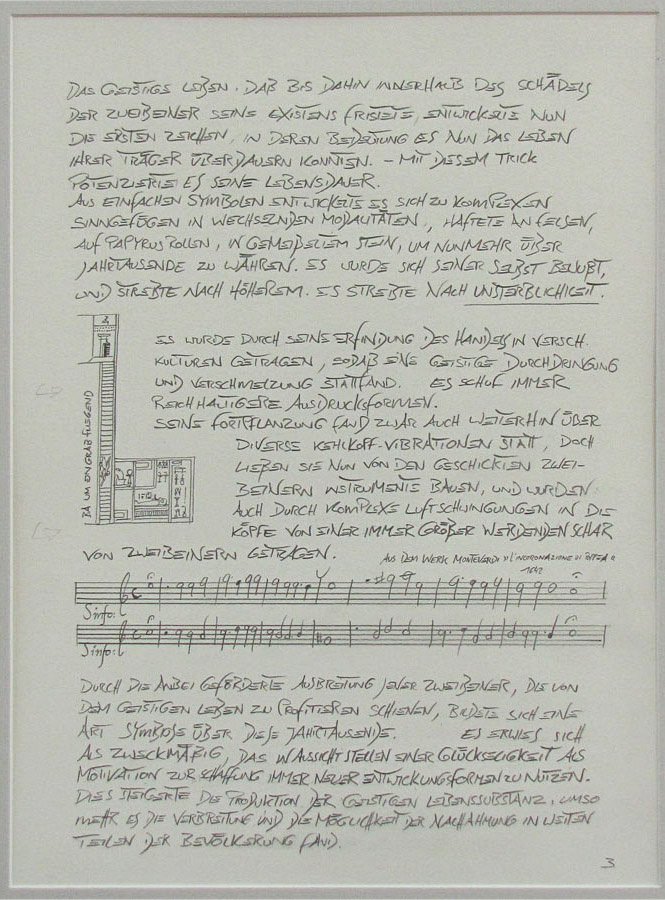 DAS GEISTIGE LEBEN, DAß BIS DAHIN INNERHALB DES SCHÄDELS
DER ZWEIBEINER SEINE EXISTENS FRISTETE, ENTWICKELTE NUN
DIE ERSTEN ZEICHEN, IN DEREN BEDEUTUNG ES NUN DAS LEBEN
IHRER TRÄGER ÜBERDAUERN KONNTEN. – MIT DIESEM TRICK
POTENZIERTE ES SEINE LEBENSDAUER.
AUS EINFACHEN SYMBOLEN ENTWICKELTE ES SICH ZU KOMPLEXEN
SINNGEFÜGEN IN WECHSELNDEN MODALITÄTEN, HAFTETE AN FELSEN,
AUF PAPYRUSROLLEN, IN GEMEIßELTEM STEIN, UM NUNMEHR ÜBER
JAHRTAUSENDE ZU WÄHREN. ES WURDE SICH SEINER SELBST BEWUßT,
UND STREBTE NACH HÖHEREM. ES STREBTE NACH UNSTERBLICHKEIT.
ES WURDE DURCH SEINE ERFINDUNG DES HANDELS IN VERSCH.
KULTUREN GETRAGEN, SODAß EINE GEISTIGE DURCHDRINGUNG
UND VERSCHMELZUNG STATTFAND. ES SCHUF IMMER
REICHHALTIGERE AUSDRUCKSFORMEN.
SEINE FORTPFLANZUNG FAND ZWAR AUCH WEITERHIN ÜBER
DIVERSE KEHLKOPF-VIBRATIONEN STATT, DOCH
LIEßEN SIE NUN VON DEN GESCHICKTEN ZWEI-
BEINERN INSTRUMENTE BAUEN, UND WURDEN
AUCH DURCH KOMPLEXE LUFTSCHWINGUNGEN IN DIE
KÖPFE VON EINER IMMER GRÖßER WERDENDEN SCHAR
VON ZWEIBEINERN GETRAGEN.
AUS DEM WERK MONTEVERDI "L'INCORONAZIONE DI POPPEA"
1642
Sinfo:
Sinfo:
DURCH DIE ANBEI GEFÖRDERTE AUSBREITUNG JENER ZWEIBEINER, DIE VON
DEM GEISTIGEN LEBEN ZU PROFITIEREN SCHIENEN, BILDETE SICH EINE
ART SYMBIOSE ÜBER DIESE JAHRTAUSENDE. ES ERWIES SICH
ALS ZWECKMÄßIG, DAS IN AUSSICHT STELLEN EINER GLÜCKSELIGKEIT ALS
MOTIVATION ZUR SCHAFFUNG IMMER NEUER ENTWICKLUNGSFORMEN ZU NUTZEN.
DIES STEIGERTE DIE PRODUKTION DER GEISTIGEN LEBENSSUBSTANZ, UMSO
MEHR ES DIE VERBREITUNG UND DIE MÖGLICHKEIT DER NACHAHMUNG IN WEITEN
TEILEN DER BEVÖLKERUNG FAND.
3